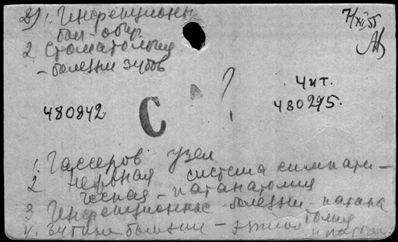 2) 1. Инфекционн
бол. общ.
2 Стоматология
- болезни зубов
7/XII 55
480842
С
?
Чит.
480295.
1. Гассеров узел
2 Нервная система симпати-
ческая - патанатомия
3 Инфекционные болезни - патана
томия
4.